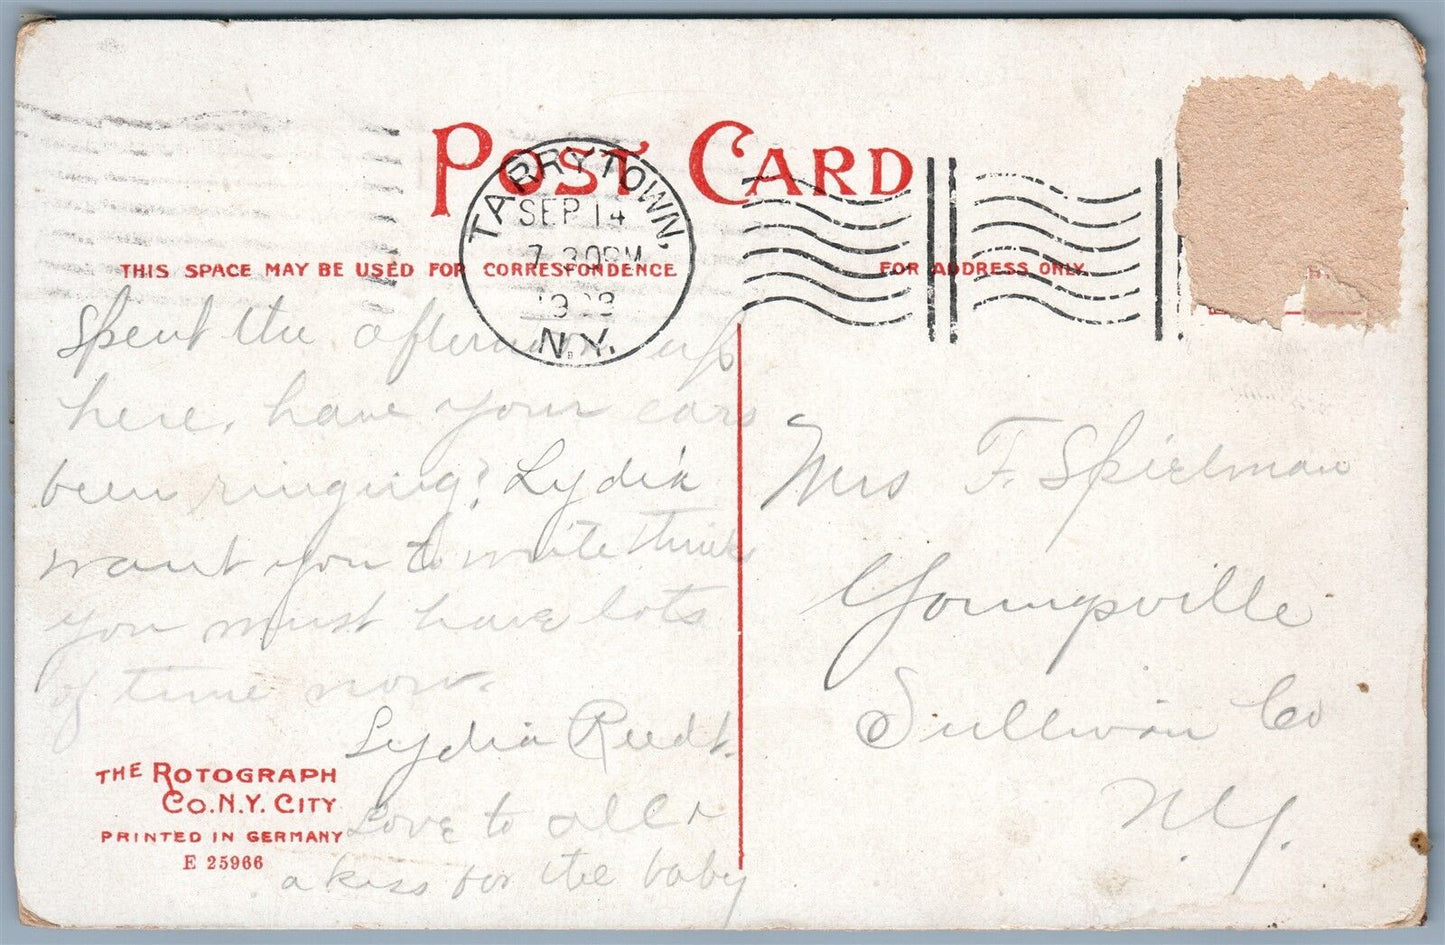 POST CARD
TARRYTOWN,
SEP 14
7 30PM
N.Y.
THIS SPACE MAY BE USED FOR CORRESPONDENCE
FOR ADDRESS ONLY.
Spent the afternoon up
here, have your ears
been ringing? Lydia
want you to write thinks
you must have lots
of time now.
Lydia
Love to all
a kiss for the baby
THE ROTOGRAPH
CO. N.Y. CITY
PRINTED IN GERMANY
E 25966
Mrs F. Spielman
Youngsville
Sullivan Co
N.Y.